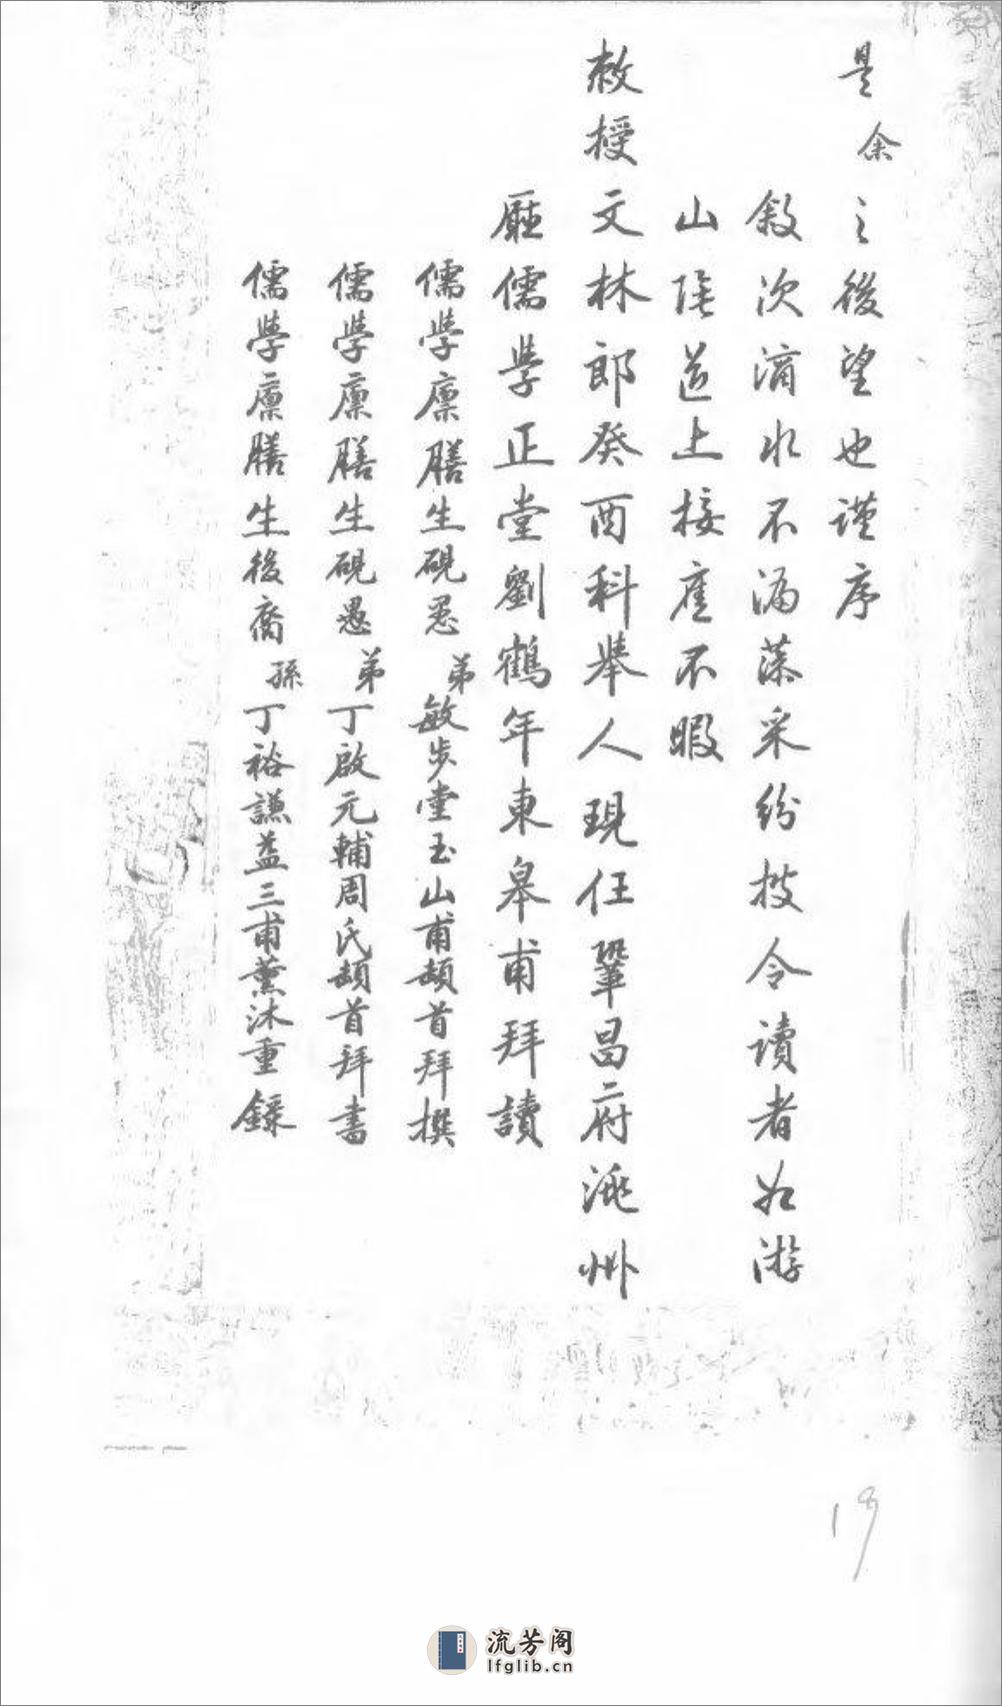 是余之後望也謹序
敘次滴水不漏藻采紛披令讀者如游
山陰道上接應不暇
敕授文林郎癸酉科舉人現任鞏昌府洮州
廳儒學正堂劉鶴年東皋甫拜讀
儒學廩膳生硯愚弟敏步堂玉山甫頓首拜撰
儒學廩膳生硯愚弟丁啟元輔周氏頓首拜書
儒學廩膳生後裔孫丁裕謙益三甫薰沐重錄
19
流芳阁
lfglib.cn